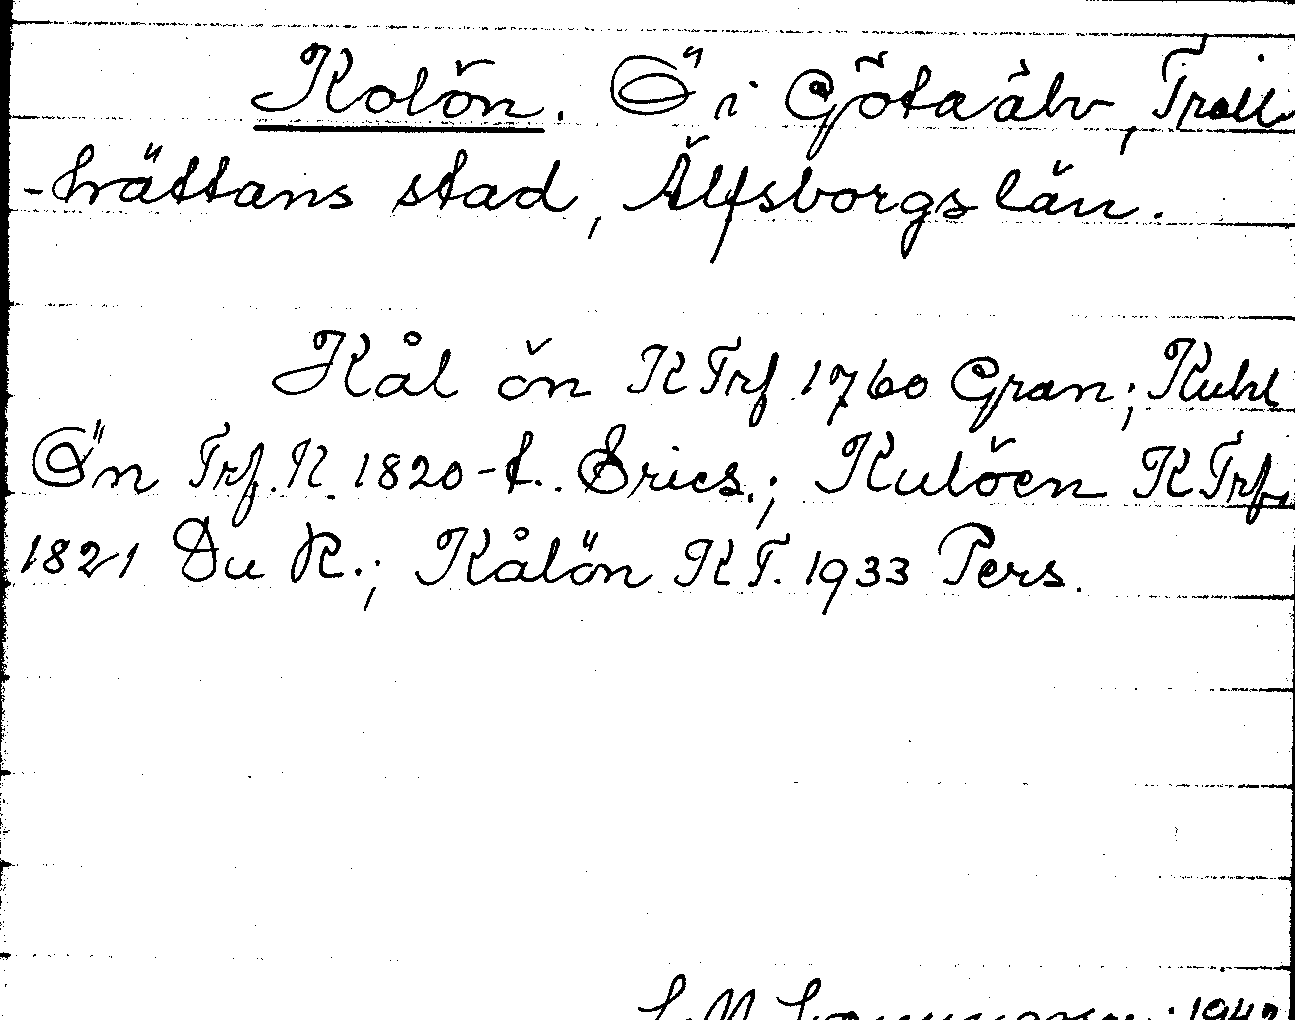 Kolön. Ö i Göta älv, Troll
-hättans stad, Älfsborgs län.
Kål ön K Trf 1760 Gran; Kuhl
Ön Trf. K. 1820-t. Erics.; Kulöen K Trf.
1821 Du R.; Kålön K T. 1933 Pers.